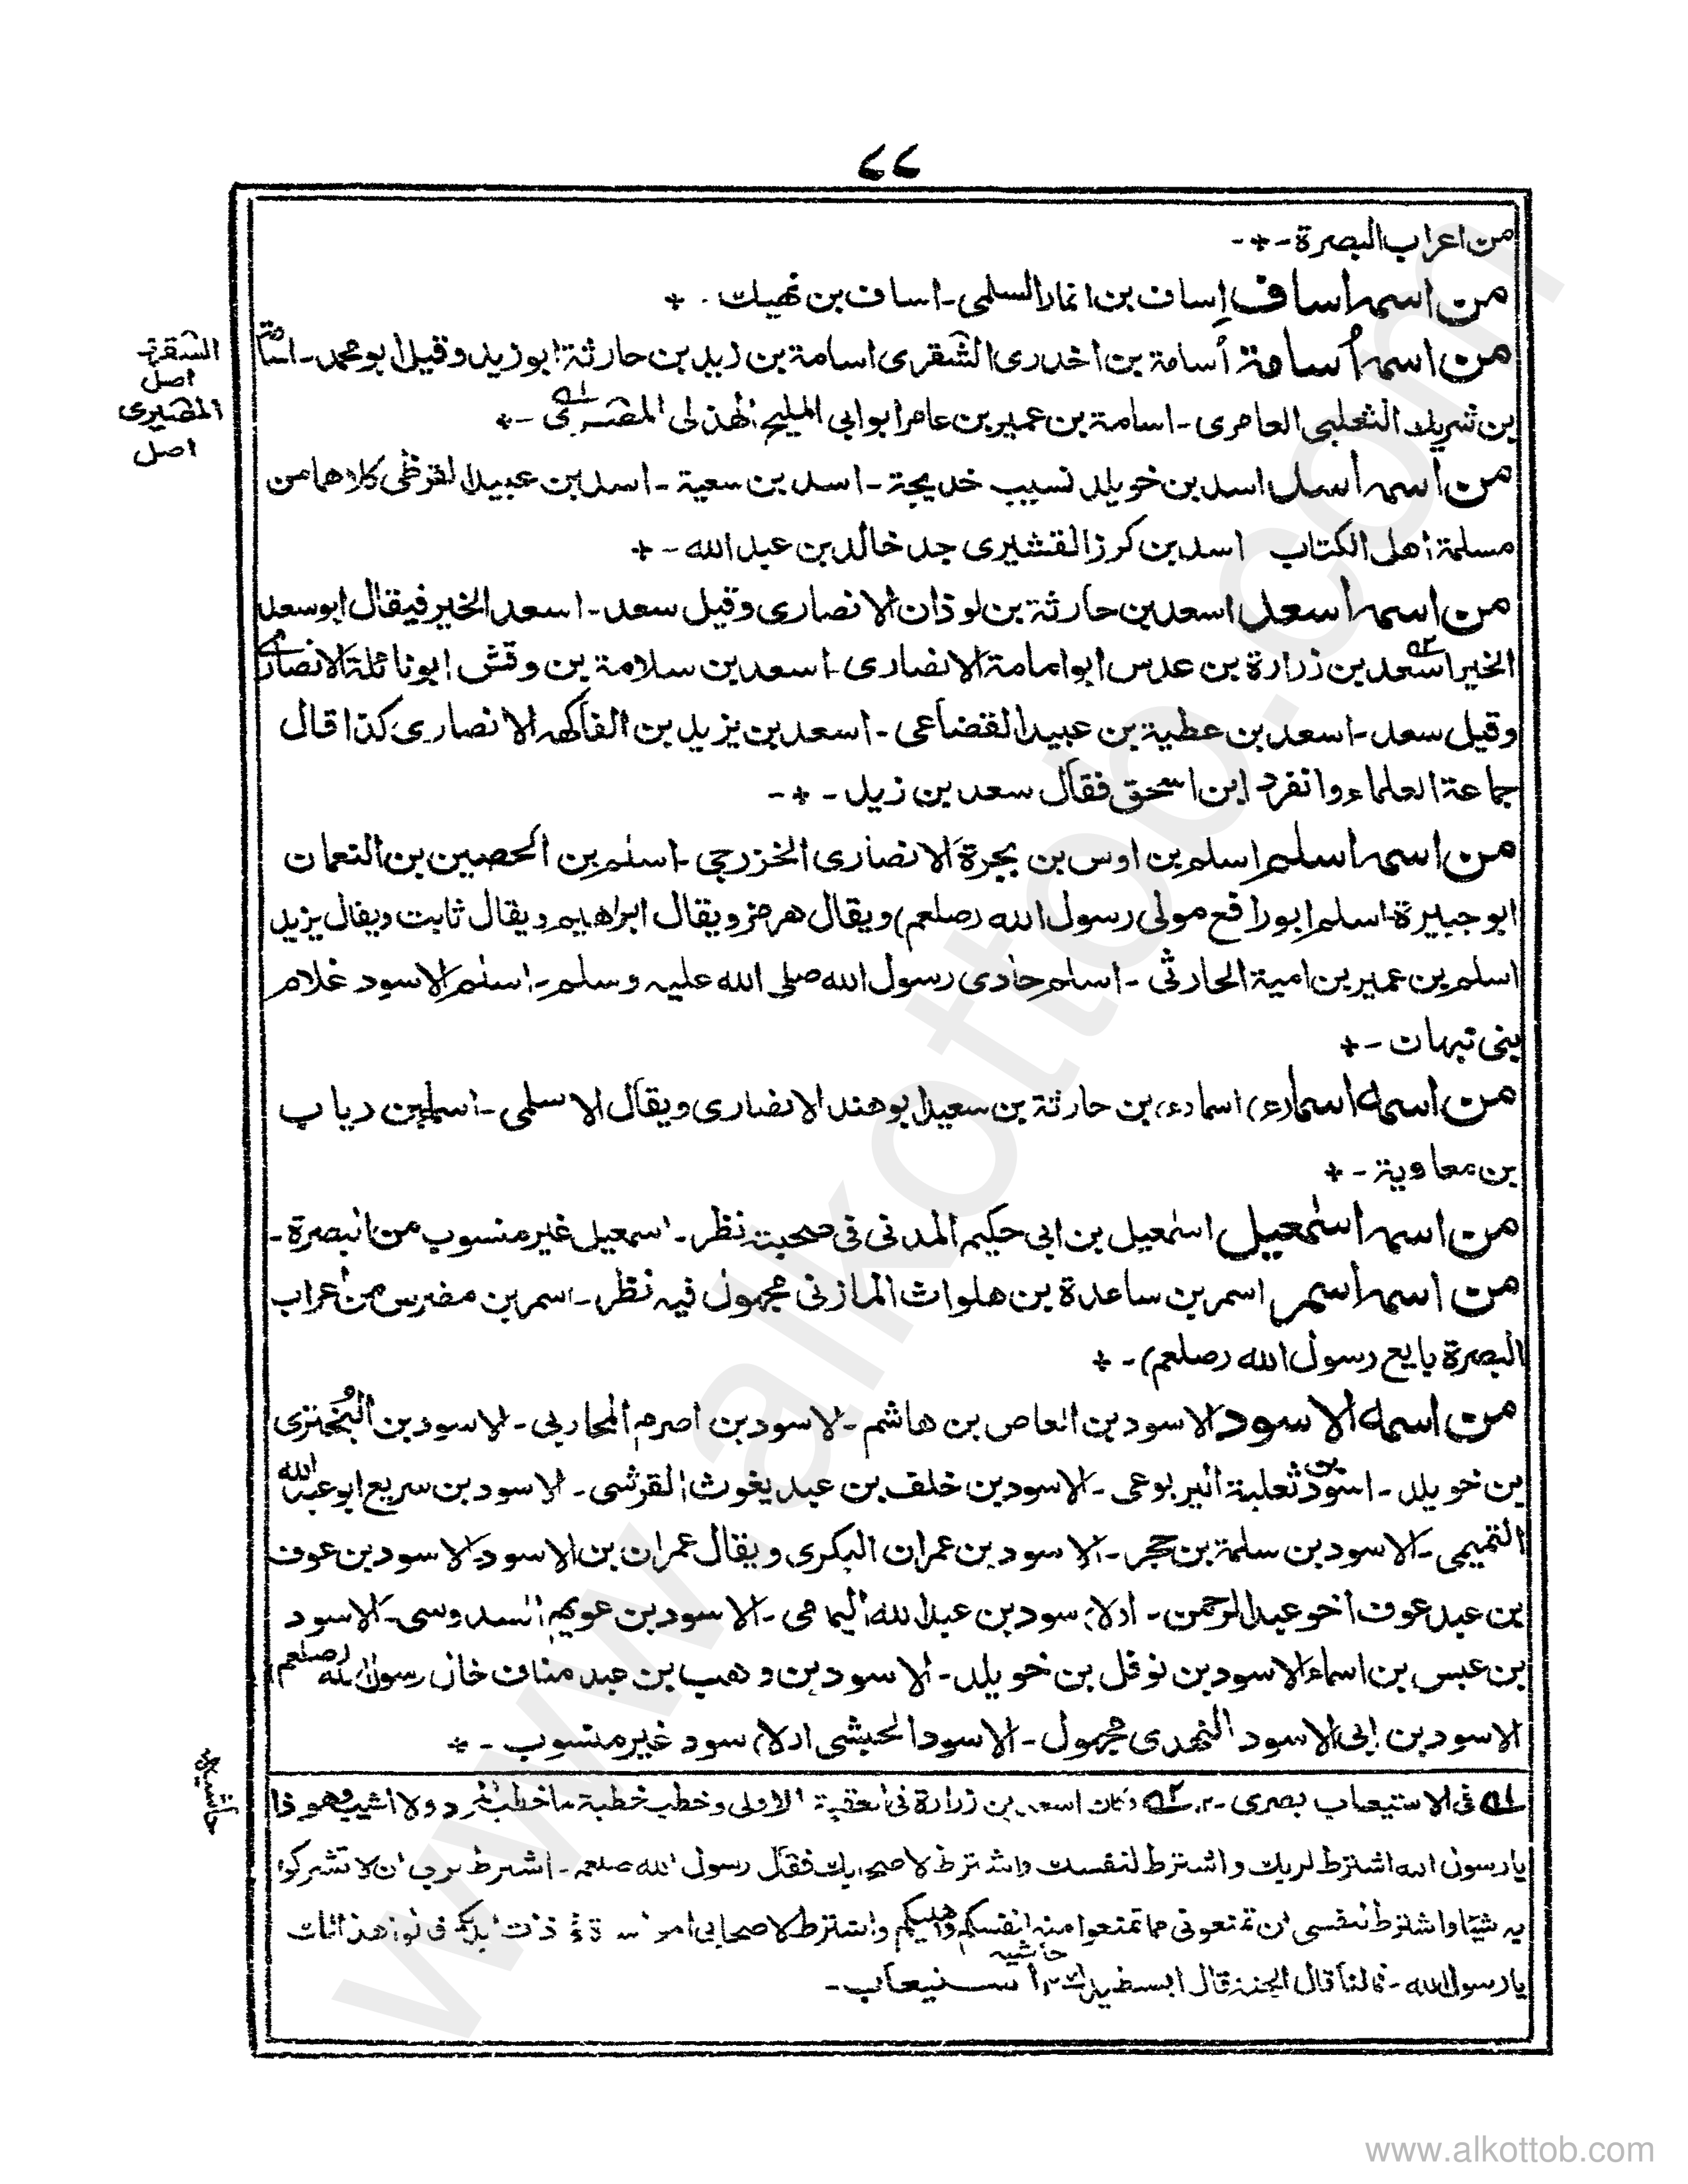 ۷۷
من اعراب البصرة -+-
من اسمہ اساف اِساف بن انمار السلمی - اساف بن نھیك . +
من اسمہ اُسامة اُسامة بن اخدری الشقری اسامة بن زید بن حارثة ابو زید وقیل ابو محمد - اسامة
الشقرة
اصل
بن شریك الثعلبی العامری - اسامة بن عمیر بن عامر ابو ابی الملیح الهذلی -+
المضیری
اصل
من اسمہ اسد اسد بن خویلد نسیب خدیجة - اسد بن سعیة - اسد بن عبید القرظی کلاهما من
مسلمة اهل الکتاب اسد بن کرز القشیری جد خالد بن عبد الله -+
من اسمہ اسعد اسعد بن حارثة بن لوذان الانصاری وقیل سعد - اسعد الخیر فیقال ابو سعد
الخیر اسعد ۲ بن زرارة بن عدس ابو امامة الانصاری - اسعد بن سلامة بن وقش ابو نائلة الانصاری
وقیل سعد - اسعد بن عطیة بن عبید القضاعی - اسعد بن یزید بن الفاکہ الانصاری کذا قال
جماعة العلماء وانفرد ابن اسحق فقال سعد بن زید -+-
من اسمہ اسلم اسلم بن اوس بن بجرة الانصاری الخزرجی - اسلم بن الحصین بن النعمان
ابو جبیرة - اسلم ابو رافع مولی رسول الله (صلعم) ویقال هرمز ویقال ابراهیم ویقال ثابت ویقال یزید
اسلم بن عمیر بن امیة الحارثی - اسلم حادی رسول الله صلی الله علیہ وسلم - اسلم الاسود غلام
بنی نبهان -+
من اسمه اسما(ء) اسما(ء) بن حارثة بن سعید ابو هند الانصاری ویقال الاسلمی - اسماء بن ریاب
بن معاویة -+
من اسمہ اسمٰعیل اسمٰعیل بن ابی حکیم المدنی فی صحبتہ نظر - اسمعیل غیر منسوب من البصرة -
من اسمہ اسمر اسمر بن ساعدة بن هلواث المازنی مجهول فیہ نظر - اسمر بن مضرس من اعراب
البصرة بایع رسول الله (صلعم) -+
من اسمه الاسود الاسود بن العاص بن هاشم - لاسود بن اصرم المحاربی - لاسود بن البُختری
بن خویلد - اسود بن ثعلبة الیربوعی - الاسود بن خلف بن عبد یغوث القرشی - الاسود بن سریع ابو عبد الله
التمیمی - الاسود بن سلمة بن حجر - الاسود بن عمران البکری ویقال عمران بن الاسود - الاسود بن عوف
بن عبد عوف اخو عبد الرحمن - (الا) سود بن عبد الله الیمامی - الاسود بن عویم السدوسی - الاسود
بن عبس بن اسماء الاسود بن نوفل بن خویلد - الاسود بن وهب بن عبد مناف خال رسول الله (صلعم)
الاسود بن ابی الاسود النهدی مجهول - الاسود الحبشی (الا) سود غیر منسوب -+
حاشیہ
۱ فی الاستیعاب بصری -۱۲ ۲ وکان اسعد بن زرارة فی العقبة الاولی وخطب خطبة ما خطب وهو ذا
یا رسول الله اشترط لربك واشترط لنفسك واشترط لاصحابك فقال رسول الله صلعم - اشترط لربی ان لا تشرکوا
بہ شیئا واشترط لنفسی ان تمنعونی مما تمنعوا منہ انفسکم واهلیکم واشترط لاصحابی
یا رسول الله - فما لنا قال الجنة قال ابسط یدك ۱۲ حاشیہ استیعاب -
www.alkottob.com
www.alkottob.com